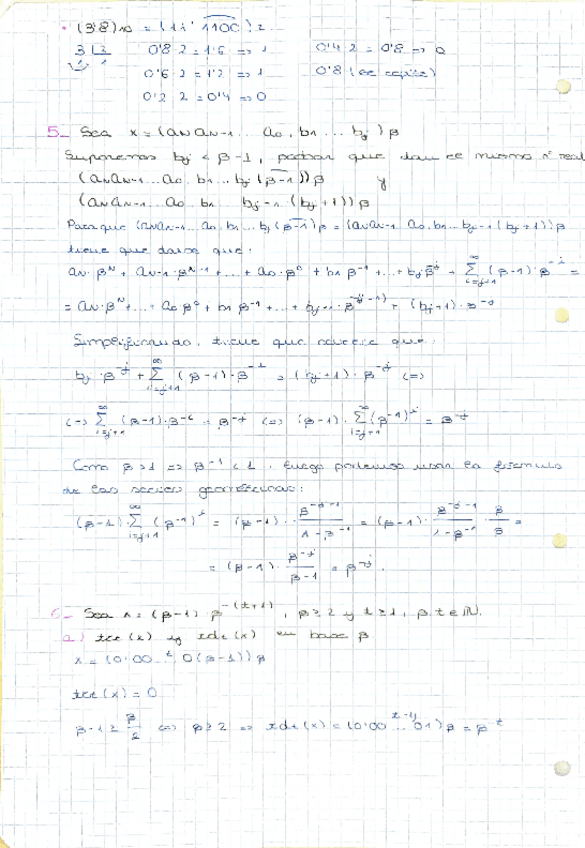 · (3'8)₁₀ = (11'1100)₂
3 |2 0'8·2 = 1'6 => 1 0'4·2 = 0'8 => 0
1 1 0'6·2 = 1'2 => 1 0'8 (se repite)
0'2·2 = 0'4 => 0
5_ Sea x = (aₙaₙ₋₁... a₀, b₁ ... bⱼ)β
Suponemos bⱼ < β-1, probar que dan el mismo nº real
(aₙaₙ₋₁... a₀. b₁... bⱼ (β-1))β y
(aₙaₙ₋₁... a₀. b₁... bⱼ₋₁ (bⱼ+1))β
Para que (aₙaₙ₋₁...a₀.b₁...bⱼ(β-1))β = (aₙaₙ₋₁...a₀.b₁...bⱼ₋₁(bⱼ+1))β
tiene que darse que:
aₙ·β^N + aₙ₋₁·β^(N-1) + ... + a₀·β⁰ + b₁β⁻¹ + ... + bⱼβ^-j + ∑_{i=j+1}^∞ (β-1)·β^-i =
= aₙ·β^N + ... + a₀β⁰ + b₁β⁻¹ + ... + bⱼ₋₁·β^-(j-1) + (bⱼ+1)·β^-j
Simplificando, tiene que ocurrir que:
bⱼ·β^-j + ∑_{i=j+1}^∞ (β-1)·β^-i = (bⱼ+1)·β^-j <=>
<=> ∑_{i=j+1}^∞ (β-1)·β^-i = β^-j <=> (β-1)·∑_{i=j+1}^∞ (β⁻¹)^i = β^-j
Como β>1 => β⁻¹<1, luego podemos usar la fórmula
de las series geométricas:
(β-1)·∑_{i=j+1}^∞ (β⁻¹)^i = (β-1)·β^(-j-1)/(1-β⁻¹) = (β-1)·β^(-j-1)/(1-β⁻¹)·β/β =
= (β-1)·β^-j/(β-1) = β^-j.
6_ Sea x = (β-1)·β^-(t+1), β≥2 y t≥1, β,t∈ℕ.
a) trt(x) y rdt(x) en base β
x = (0'00...^t 0(β-1))β
trt(x) = 0
β-1 ≥ β/2 <=> β≥2 => rdt(x) = (0'00...^(t-1) 01)β = β^-t